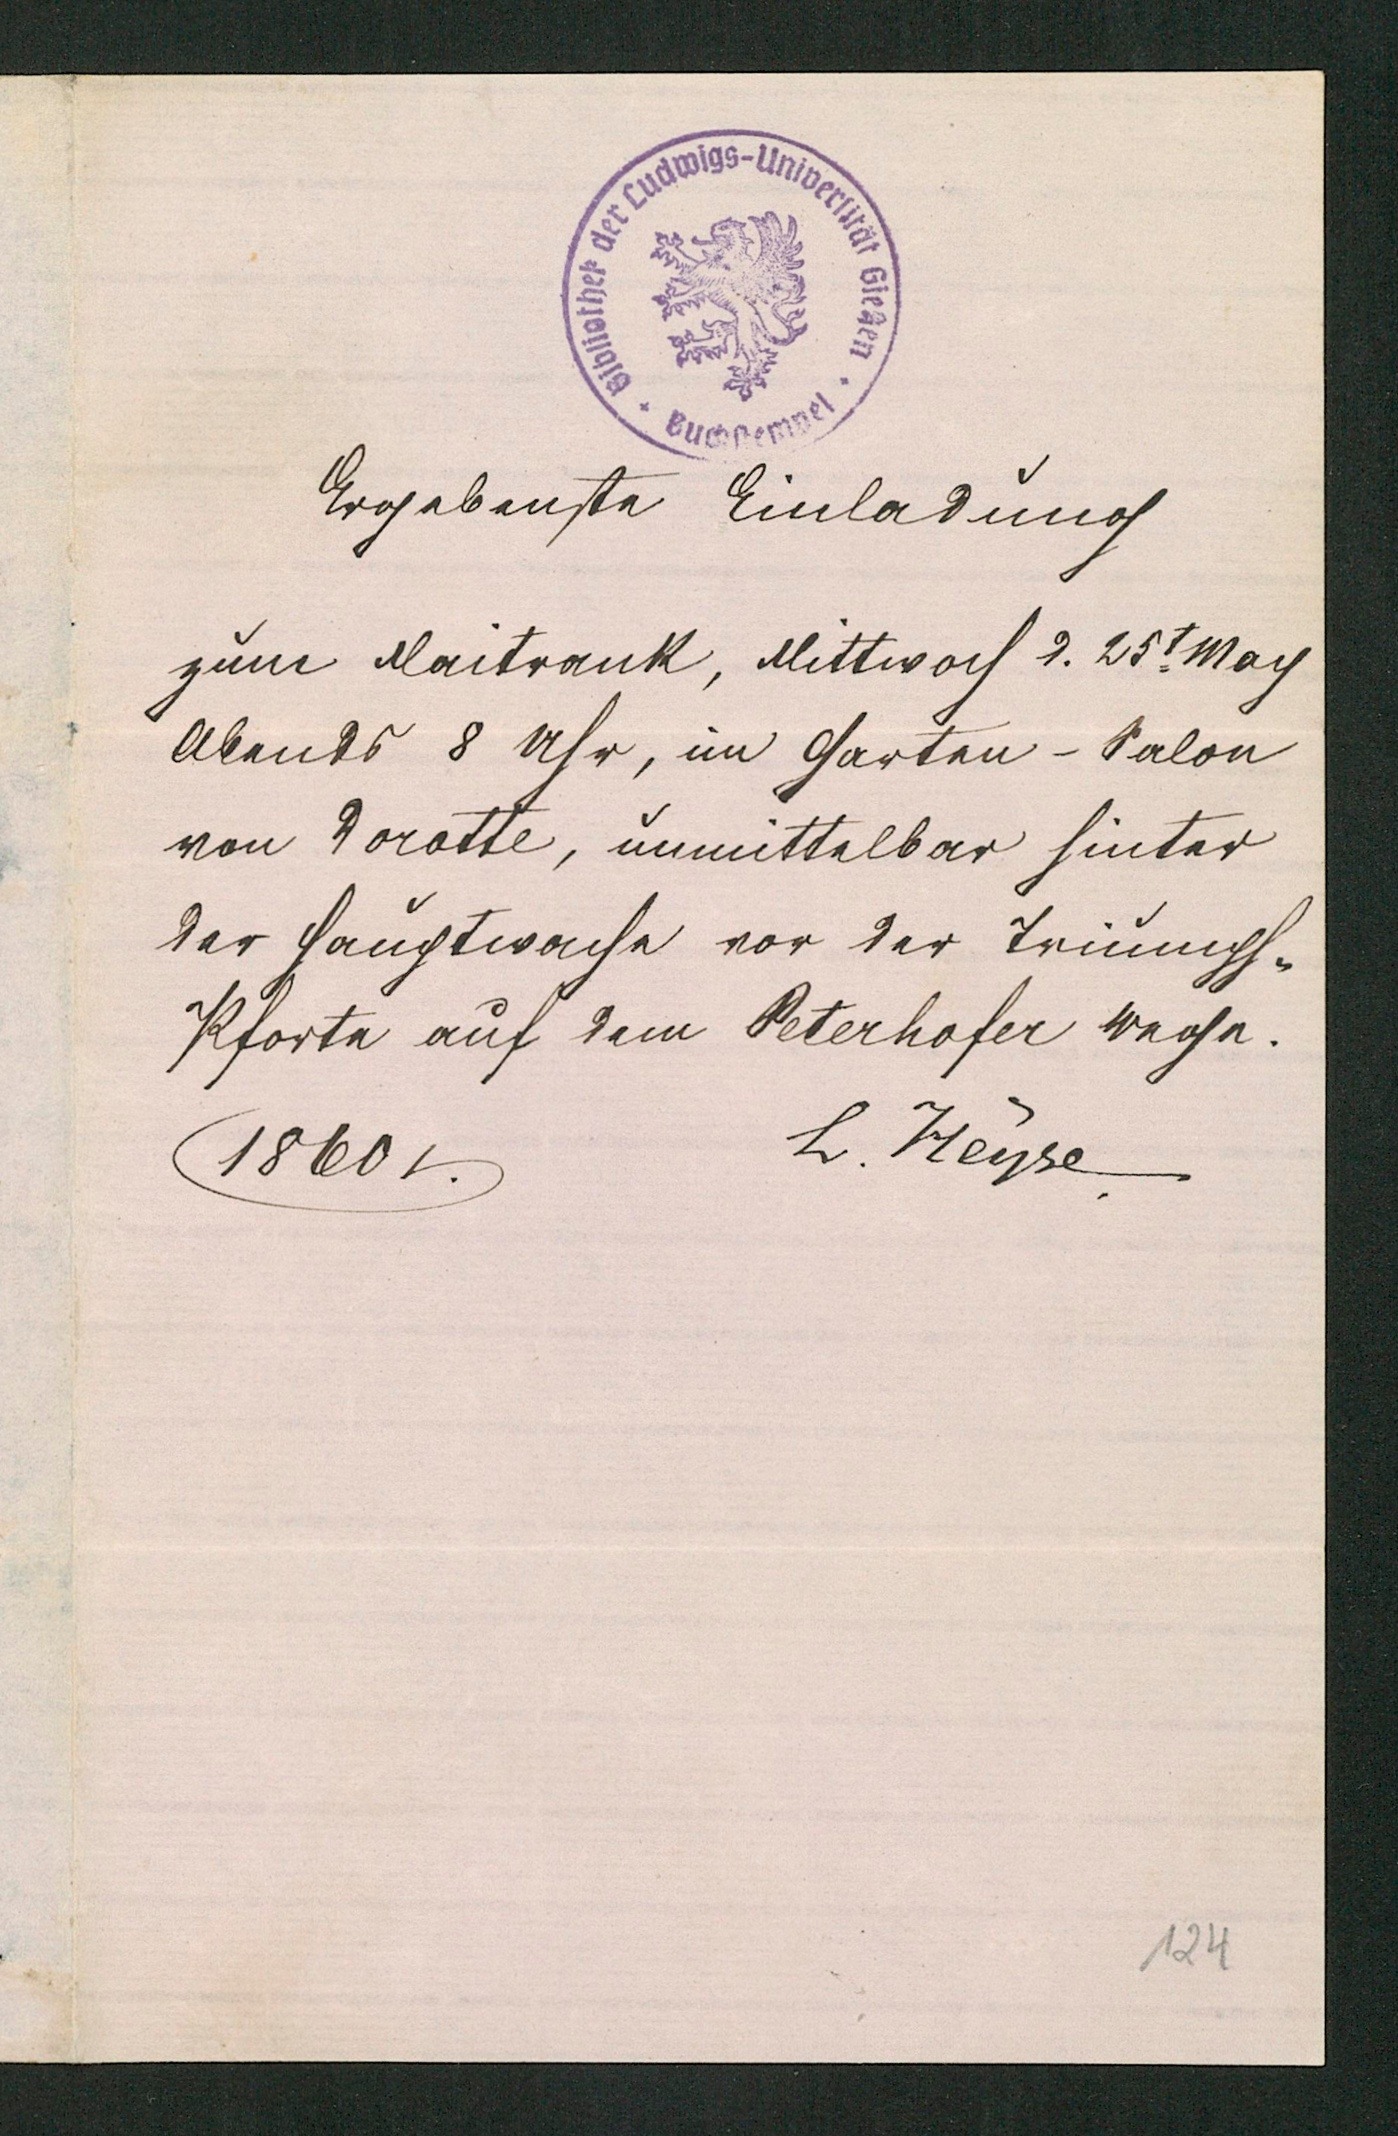 Bibliothek der Ludwigs-Universität Gießen
· Buchstempel ·
Ergebenste Einladung
zum Maitrank, Mittwoch d. 25t May
Abends 8 Uhr, im Garten - Salon
von Dorotte, unmittelbar hinter
der Hauptwache vor der Triumph-
Pforte auf dem Peterhofer Wege.
1860 L. Heyse
124